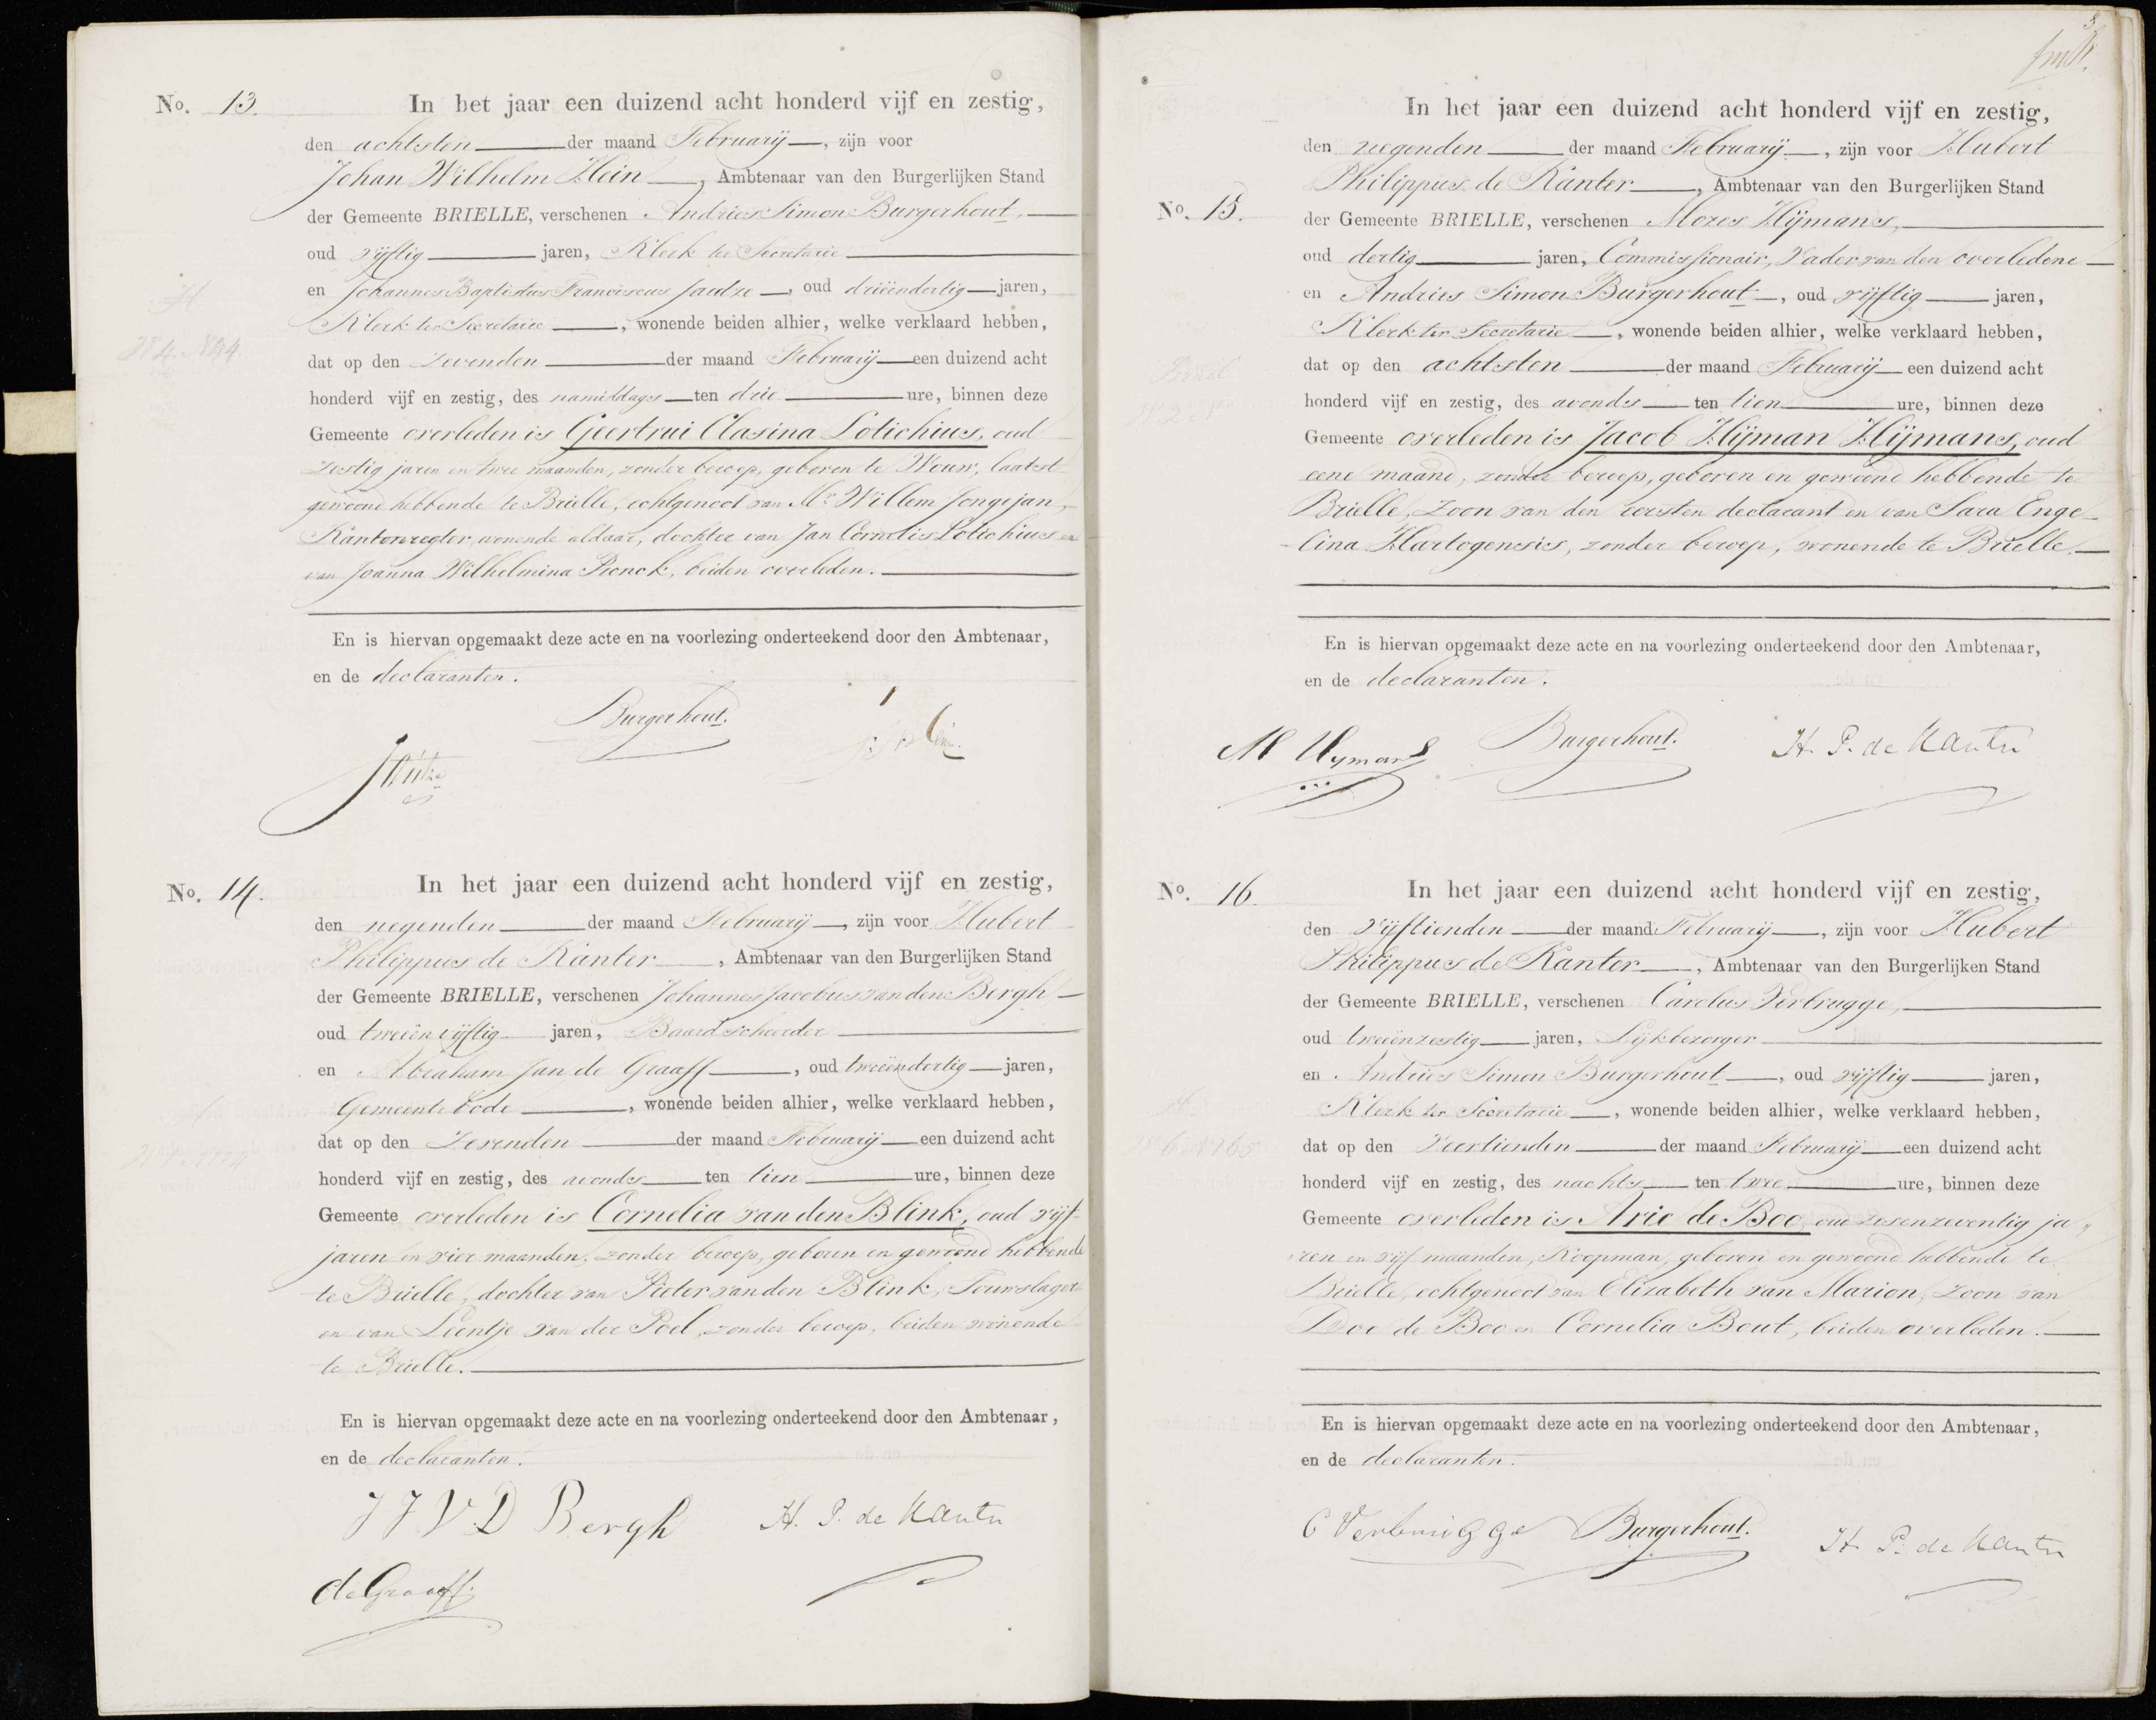 No. 13. In het jaar een duizend acht honderd vijf en zestig,
den achtsten der maand Februarij, zijn voor
Johan Wilhelm Klein, Ambtenaar van den Burgerlijken Stand
der Gemeente BRIELLE, verschenen Andries Simon Burgerhout,
oud vijftig jaren, Klerk ter Secretarie
en Johannes Baptistus Franciscus Jautze, oud drieëndertig jaren,
Klerk ter Secretarie, wonende beiden alhier, welke verklaard hebben,
dat op den zevenden der maand Februarij een duizend acht
honderd vijf en zestig, des namiddags ten drie ure, binnen deze
Gemeente overleden is Geertrui Clasina Lotichius, oud
zestig jaren en twee maanden, zonder beroep, geboren te Wouw, laatst
gewoond hebbende te Brielle, echtgenoot van Mr. Willem Jongejan,
Kantonregter, wonende aldaar, dochter van Jan Cornelis Lotichius en
van Joanna Wilhelmina Pronck, beiden overleden.
En is hiervan opgemaakt deze acte en na voorlezing onderteekend door den Ambtenaar,
en de declaranten.
Burgerhout.
Jautze
No. 14. In het jaar een duizend acht honderd vijf en zestig,
den negenden der maand Februarij, zijn voor Hubert
Philippus de Kanter, Ambtenaar van den Burgerlijken Stand
der Gemeente BRIELLE, verschenen Johannes Jacobus van den Bergh
oud tweeënvijftig jaren, Baardscheerder
en Abraham Jan de Graaff, oud tweeëndertig jaren,
Gemeentebode, wonende beiden alhier, welke verklaard hebben,
dat op den zevenden der maand Februarij een duizend acht
honderd vijf en zestig, des avonds ten tien ure, binnen deze
Gemeente overleden is Cornelia van den Blink, oud vijf
jaren en vier maanden, zonder beroep, geboren en gewoond hebbende
te Brielle, dochter van Pieter van den Blink, Touwslager
en van Leentje van der Poel, zonder beroep, beiden wonende
te Brielle.
En is hiervan opgemaakt deze acte en na voorlezing onderteekend door den Ambtenaar,
en de declaranten.
J J V D Bergh H. P. de Kanter
de Graaff
In het jaar een duizend acht honderd vijf en zestig,
den negenden der maand Februarij, zijn voor Hubert
Philippus de Kanter, Ambtenaar van den Burgerlijken Stand
No. 15. der Gemeente BRIELLE, verschenen Mozes Hijmans,
oud dertig jaren, Commissionair, Vader van den overledene
en Andries Simon Burgerhout, oud vijftig jaren,
Klerk ter Secretarie, wonende beiden alhier, welke verklaard hebben,
dat op den achtsten der maand Februarij een duizend acht
honderd vijf en zestig, des avonds ten tien ure, binnen deze
Gemeente overleden is Jacob Hijman Hijmans, oud
eene maand, zonder beroep, geboren en gewoond hebbende te
Brielle, Zoon van den eersten declarant en van Sara Enge-
lina Hartogensis, zonder beroep, wonende te Brielle.
En is hiervan opgemaakt deze acte en na voorlezing onderteekend door den Ambtenaar,
en de declaranten.
M Hymans Burgerhout. H. P. de Kanter
No. 16. In het jaar een duizend acht honderd vijf en zestig,
den vijftienden der maand Februarij, zijn voor Hubert
Philippus de Kanter, Ambtenaar van den Burgerlijken Stand
der Gemeente BRIELLE, verschenen Carolus Verbrugge,
oud tweeënzestig jaren, Lijkbezorger
en Andries Simon Burgerhout, oud vijftig jaren,
Klerk ter Secretarie, wonende beiden alhier, welke verklaard hebben,
dat op den veertienden der maand Februarij een duizend acht
honderd vijf en zestig, des nachts ten twee ure, binnen deze
Gemeente overleden is Arie de Boo, oud zesenzeventig ja„
ren en vijf maanden, Koopman, geboren en gewoond hebbende te
Brielle, echtgenoot van Elizabeth van Marion, Zoon van
Doe de Boo en Cornelia Bout, beiden overleden.
En is hiervan opgemaakt deze acte en na voorlezing onderteekend door den Ambtenaar,
en de declaranten.
C Verbrugge Burgerhout. H. P. de Kanter